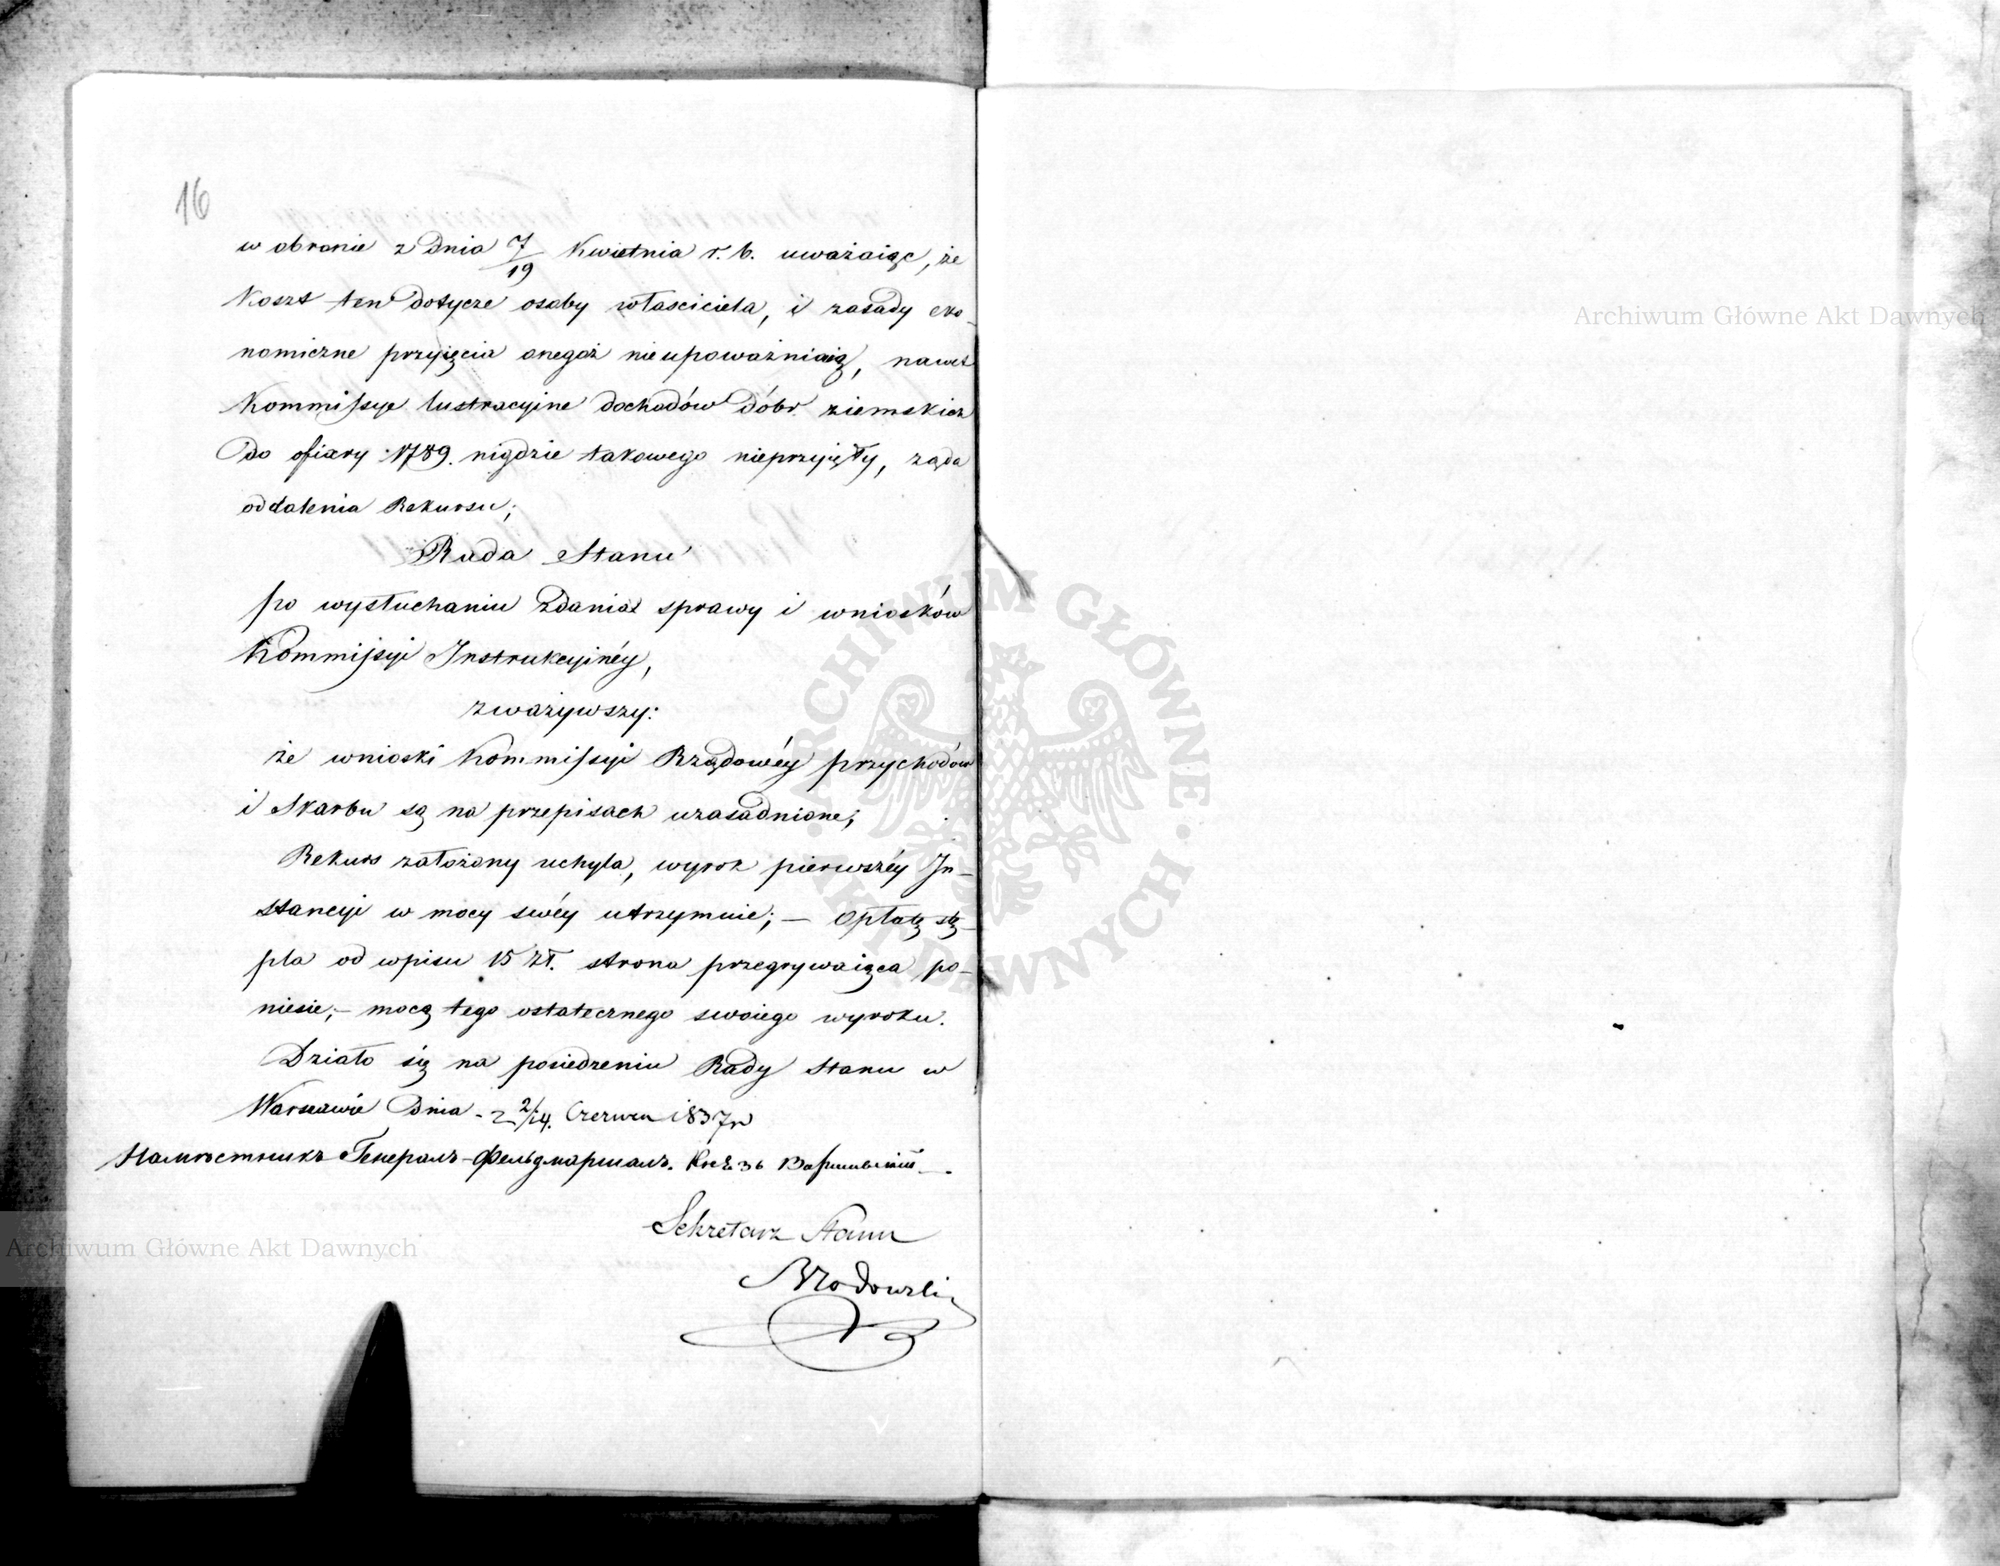 16
w obronie z Dnia 7/19 Kwietnia r. b. uważaiąc, że
Koszt ten dotycze osoby własciciela, i zasady eko-
nomiczne przyięcia onegoż nieupoważniaią, nawet
Kommissye lustracyine dochodów dóbr ziemskich
do ofiary 1789. nigdzie takowego nieprzyięły, ząda
oddalenia Rekursu;
Rada Stanu
po wysłuchaniu zdania sprawy i wniosków
Kommissyi Instrukcyinéy,
zważywszy:
że wnioski Kommissyi Rządowéy przychodów
i Skarbu są na przepisach uzasadnione;
Rekurs założony uchyla, wyrok pierwszéy In-
stancyi w mocy swéy utrzymuie; — Opłatę stę-
pla od wpisu 15 Zł. strona przegrywaiąca po-
niesie; — mocą tego ostatecznego swoiego wyroku.
Działo się na posiedzeniu Rady Stanu w
Warszawie Dnia 2/14. Czerwca 1837 r
Намѣстникъ Генералъ-Фельдмаршалъ. Князь Варшавскій
Sekretarz Stanu
Brodowski
Archiwum Główne Akt Dawnych
Archiwum Główne Akt Dawnych
ARCHIWUM GŁÓWNE · AKT DAWNYCH ·